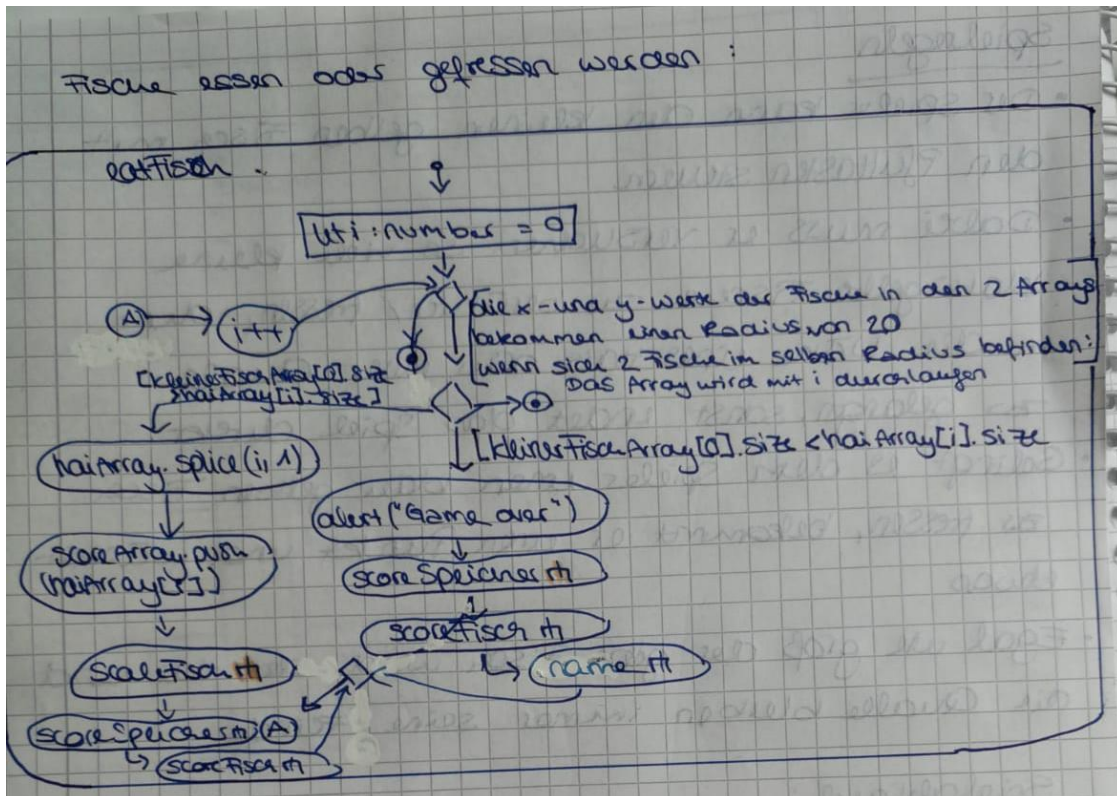 Fische essen oder gefressen werden :
eatFisch
let i : number = 0
A
i++
[die x- und y-Werte der Fische in den 2 Arrays
bekommen einen Radius von 20
wenn sich 2 Fische im selben Radius befinden:
Das Array wird mit i durchlaufen
[kleinerFischArray[0].size
>haiArray[i].size]
[kleinerFischArray[0].size <haiArray[i].size
haiArray.splice(i, 1)
alert("Game over")
scoreArray.push
(haiArray[i])
scoreSpeicher
scoreFisch
scaleFisch
name
scoreSpeicher
A
scoreFisch